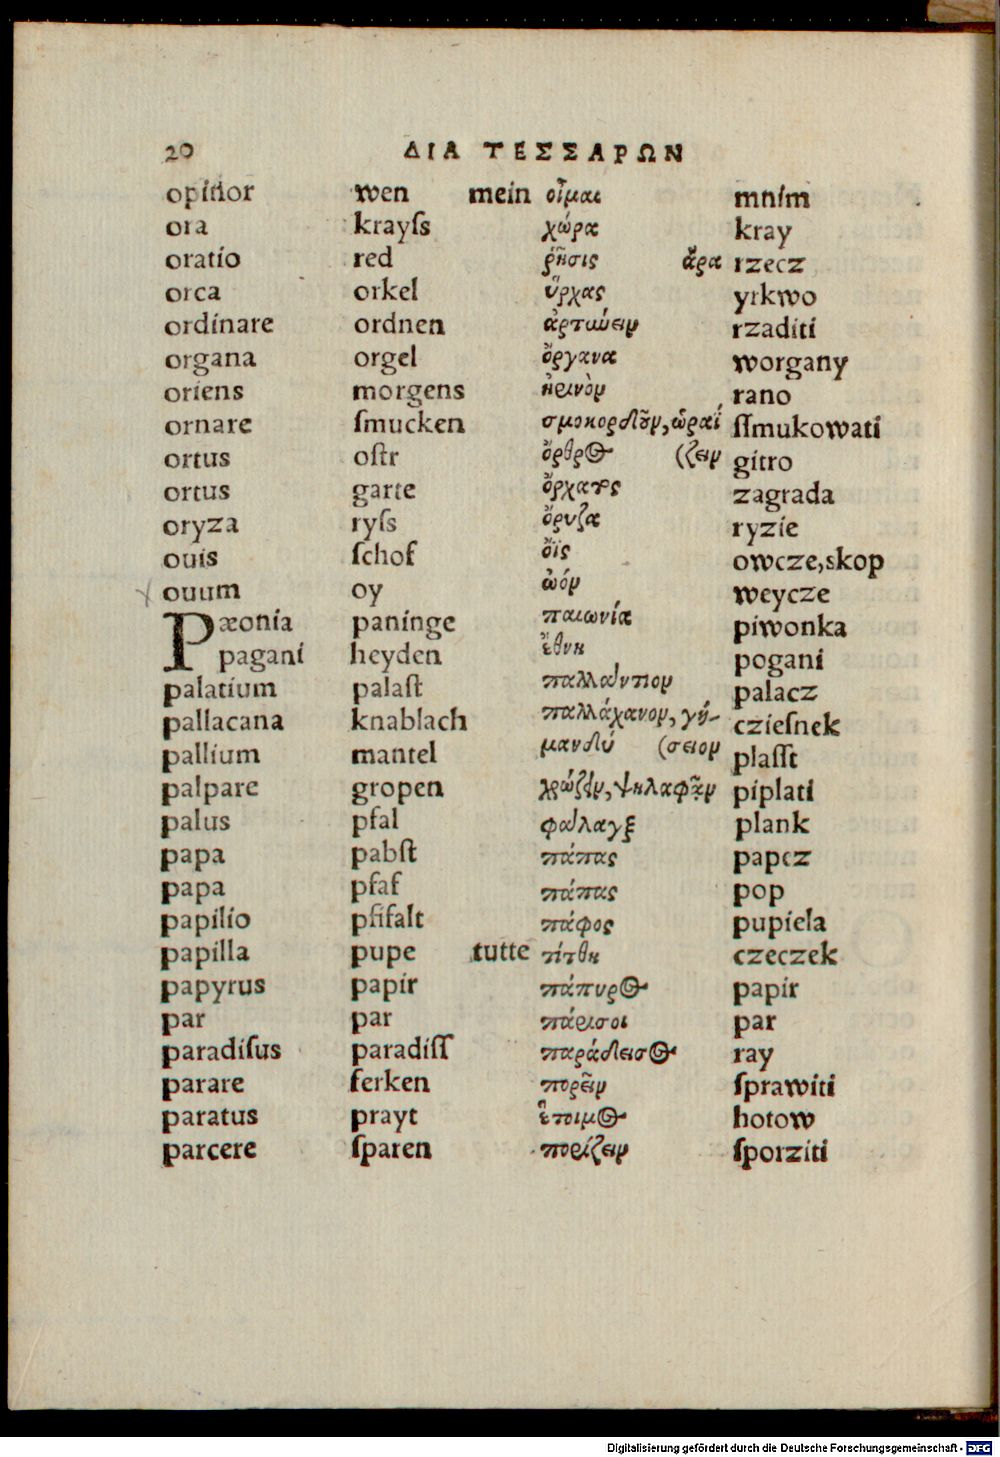 20 ΔΙΑ ΤΕΣΣΑΡΩΝ
opinor wen mein οἶμαι mnim
ora krayſs χώρα kray
oratio red ῥῆσις ἄρα rzecz
orca orkel ὕρχας yrkwo
ordinare ordnen ἀρτύειν rzaditi
organa orgel ὄργανα worgany
oriens morgens rano
ornare ſmucken ὡραΐ ſſmukowati
ortus oſtr ὄρθρος (ζειν gitro
ortus garte ὄρχατος zagrada
oryza ryſs ὄρυζα ryzie
ouis ſchof ὄϊς owcze, skop
ouum oy ὠόν weycze
Pæonia paninge παιωνία piwonka
pagani heyden ἔθνη pogani
palatium palaſt παλλάντιον palacz
pallacana knablach παλλάχανον, γή- czieſnek
pallium mantel μανδύ (σειον plaſſt
palpare gropen χρώζειν, ψηλαφᾶν piplati
palus pfal φάλαγξ plank
papa pabſt πάπας papez
papa pfaf πάπας pop
papilio pfifalt πάφος pupiela
papilla pupe tutte τίτθη czeczek
papyrus papir πάπυρος papir
par par πάρισοι par
paradiſus paradiſſ παράδεισος ray
parare ferken πορεῖν ſprawiti
paratus prayt ἕτοιμος hotow
parcere ſparen πορίζειν ſporziti
Digitalisierung gefördert durch die Deutsche Forschungsgemeinschaft - DFG